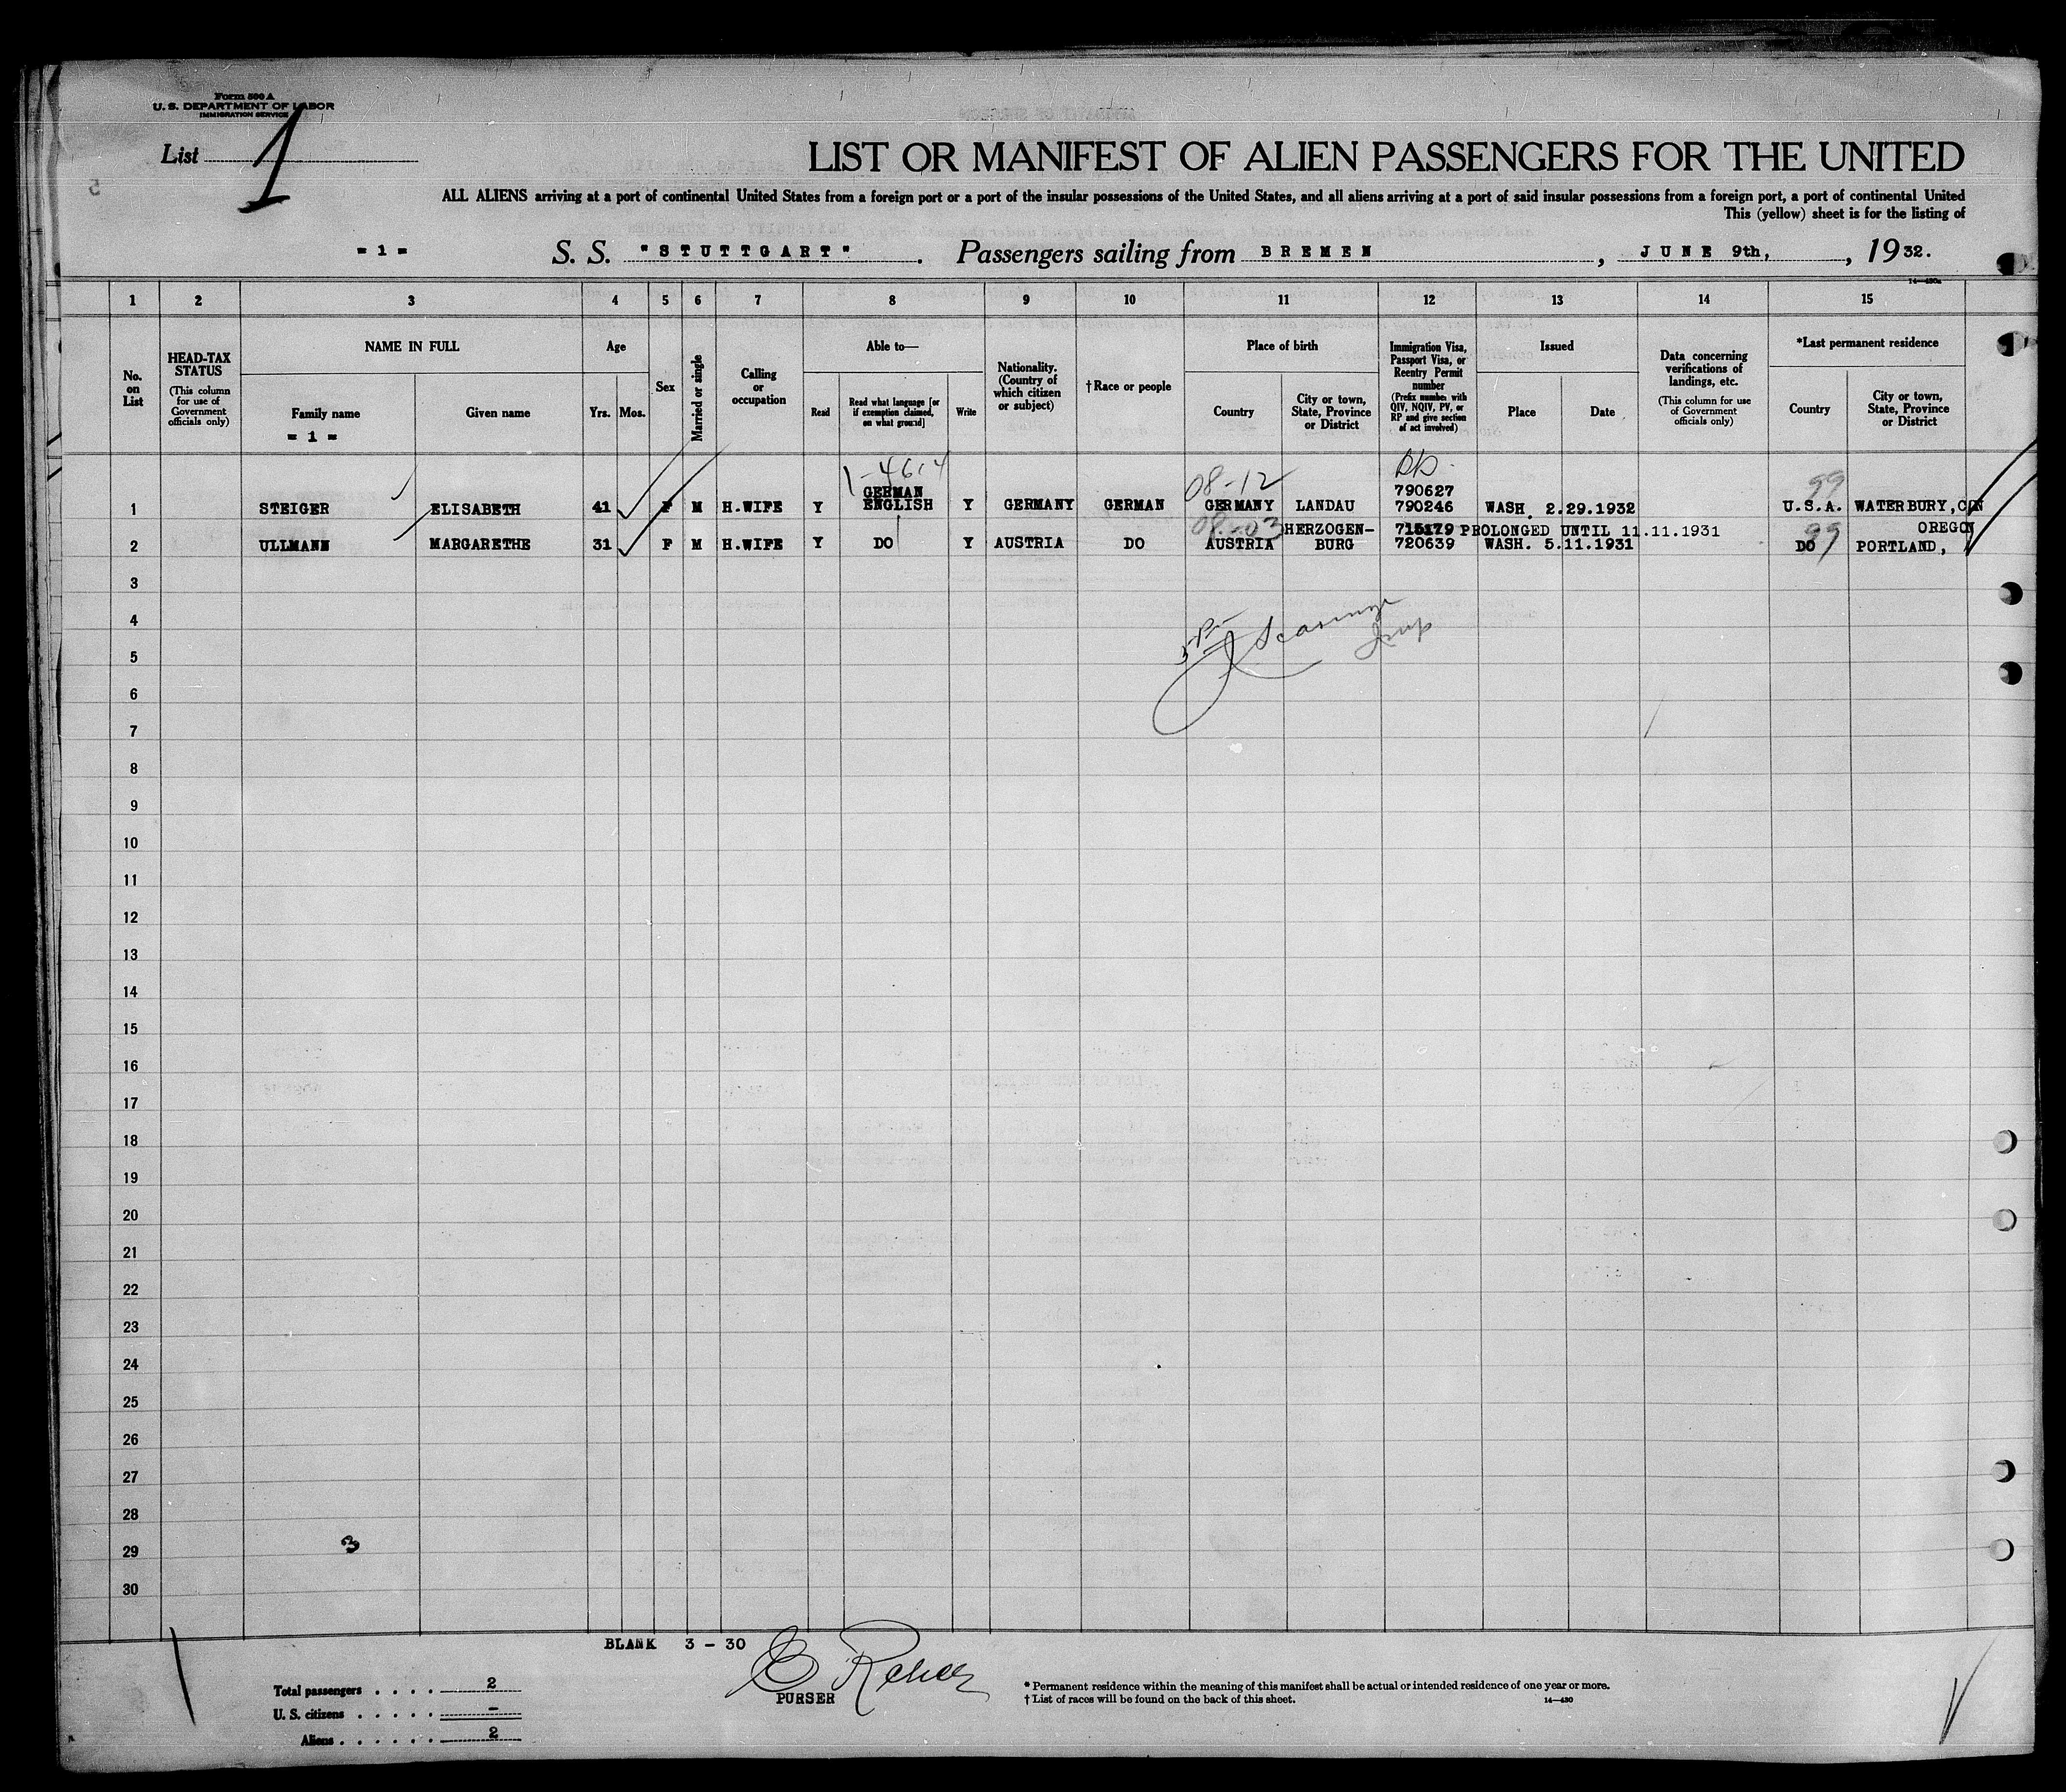 Form 500 A
U. S. DEPARTMENT OF LABOR
IMMIGRATION SERVICE
List 1
LIST OR MANIFEST OF ALIEN PASSENGERS FOR THE UNITED
ALL ALIENS arriving at a port of continental United States from a foreign port or a port of the insular possessions of the United States, and all aliens arriving at a port of said insular possessions from a foreign port, a port of continental United
This (yellow) sheet is for the listing of
= 1 = S. S. "STUTTGART". Passengers sailing from BREMEN, JUNE 9th, , 1932.
1 2 3 4 5 6 7 8 9 10 11 12 13 14 15
No. on List
HEAD-TAX STATUS (This column for use of Government officials only)
NAME IN FULL
Family name
= 1 =
Given name
Age
Yrs. Mos.
Sex
Married or single
Calling or occupation
Able to—
Read
Read what language [or if exemption claimed, on what ground]
Write
Nationality. (Country of which citizen or subject)
†Race or people
Place of birth
Country
City or town, State, Province or District
Immigration Visa, Passport Visa, or Reentry Permit number (Prefix number with QIV, NQIV, PV, or RP and give section of act involved)
Issued
Place
Date
Data concerning verifications of landings, etc. (This column for use of Government officials only)
*Last permanent residence
Country
City or town, State, Province or District
08-12 99
GERMAN 790627
1 STEIGER ELISABETH 41 F M H.WIFE Y ENGLISH Y GERMANY GERMAN GERMANY LANDAU 790246 WASH. 2.29.1932 U.S.A. WATERBURY, CON
08-03 HERZOGEN- 715179 PROLONGED UNTIL 11.11.1931 OREGON
2 ULLMANN MARGARETHE 31 F M H.WIFE Y DO Y AUSTRIA DO AUSTRIA BURG 720639 WASH. 5.11.1931 DO 99 PORTLAND,
3
4
5
6
7
8
9
10
11
12
13
14
15
16
17
18
19
20
21
22
23
24
25
26
27
28
29
30
3
BLANK 3 - 30
PURSER
Total passengers . . . . 2
U. S. citizens . . . . . -
Aliens . . . . . . 2
* Permanent residence within the meaning of this manifest shall be actual or intended residence of one year or more.
† List of races will be found on the back of this sheet. 14—430